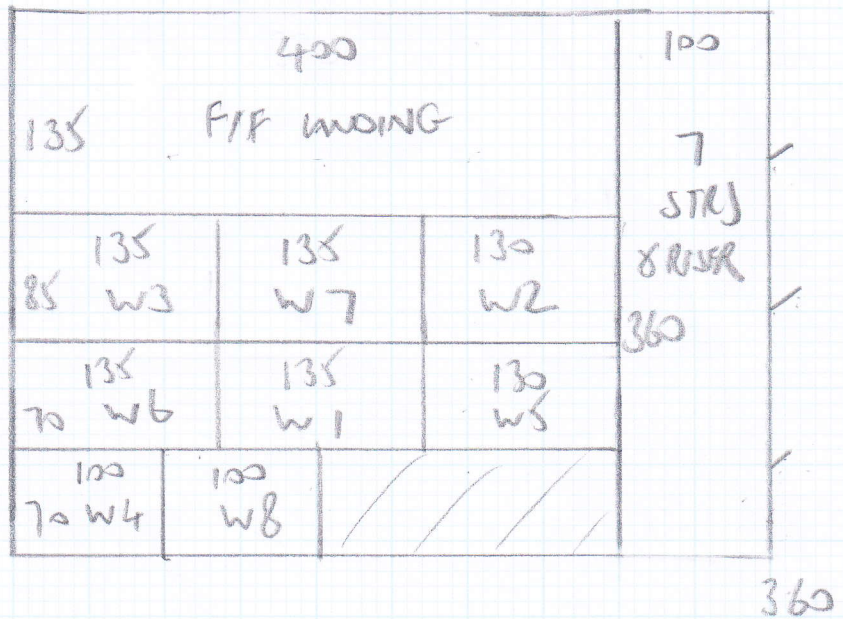 400
135 F/F LANDING
100
7
STRS
& RISER
360
135
85 W3
135
W7
130
W2
135
70 W6
135
W1
130
W5
100
70 W4
100
W8
360